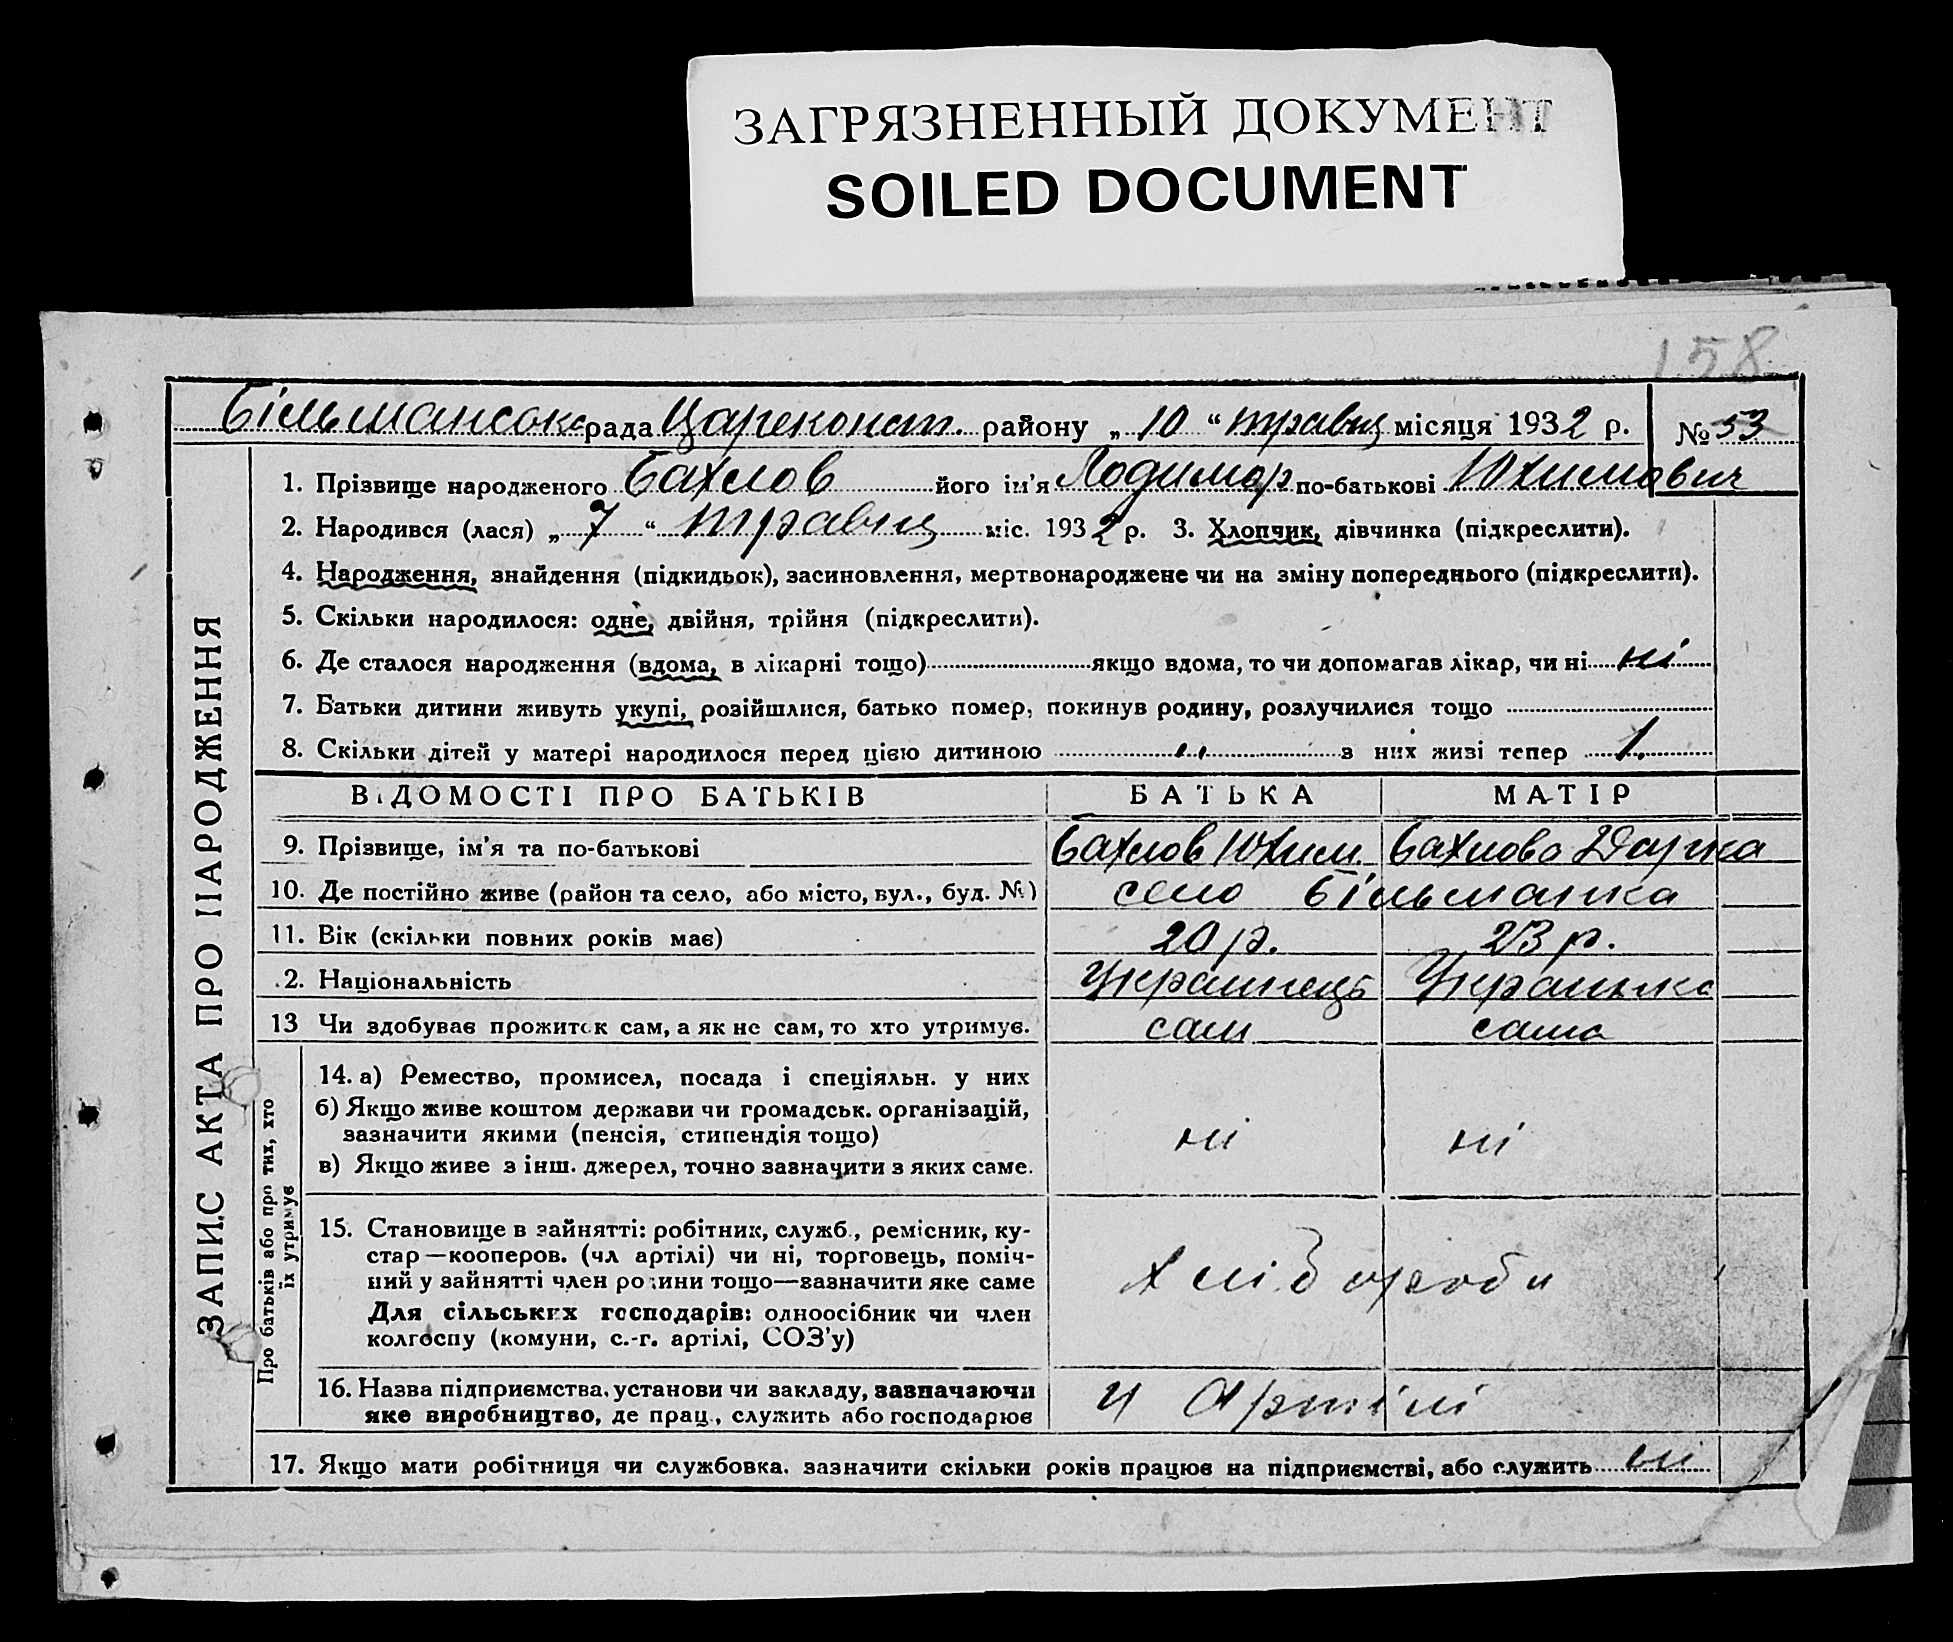 ЗАГРЯЗНЕННЫЙ ДОКУМЕНТ
SOILED DOCUMENT
158
Більманська рада Цареконст. району „ 10 “ травня місяця 1932 р. № 53
1. Прізвище народженого Бахлов його ім'я Лодимир по-батькові Юхимович
2. Народився (лася) „ 7 “ травня міс. 1932 р. 3. Хлопчик, дівчинка (підкреслити).
4. Народження, знайдення (підкидьок), засиновлення, мертвонароджене чи на зміну попереднього (підкреслити).
5. Скільки народилося: одне, двійня, трійня (підкреслити).
6. Де сталося народження (вдома, в лікарні тощо) якщо вдома, то чи допомагав лікар, чи ні ні
7. Батьки дитини живуть укупі, розійшлися, батько помер, покинув родину, розлучилися тощо
8. Скільки дітей у матері народилося перед цією дитиною з них живі тепер 1.
ВІДОМОСТІ ПРО БАТЬКІВ БАТЬКА МАТІР
9. Прізвище, ім'я та по-батькові Бахлов Юхим. Бахлова Дарка
10. Де постійно живе (район та село, або місто, вул., буд. №) село Більманка
11. Вік (скільки повних років має) 20 р. 23 р.
.2. Національність Українець Українка
13 Чи здобуває прожиток сам, а як не сам, то хто утримує. сам сама
14. а) Ремество, промисел, посада і спеціяльн. у них
б) Якщо живе коштом держави чи громадськ. організацій,
зазначити якими (пенсія, стипендія тощо) ні ні
в) Якщо живе з інш. джерел, точно зазначити з яких саме.
15. Становище в зайнятті: робітник, служб., ремісник, ку-
стар—кооперов. (чл артілі) чи ні, торговець, поміч-
ний у зайнятті член родини тощо—зазначити яке саме хлібороби
Для сільських господарів: одноосібник чи член
колгоспу (комуни, с.-г. артілі, СОЗ'у)
16. Назва підприємства, установи чи закладу, зазначаючи
яке виробництво, де прац., служить або господарює у Артілі
17. Якщо мати робітниця чи службовка, зазначити скільки років працює на підприємстві, або служить ні
ЗАПИС АКТА ПРО НАРОДЖЕННЯ
Про батьків або про тих, хто
їх утримує